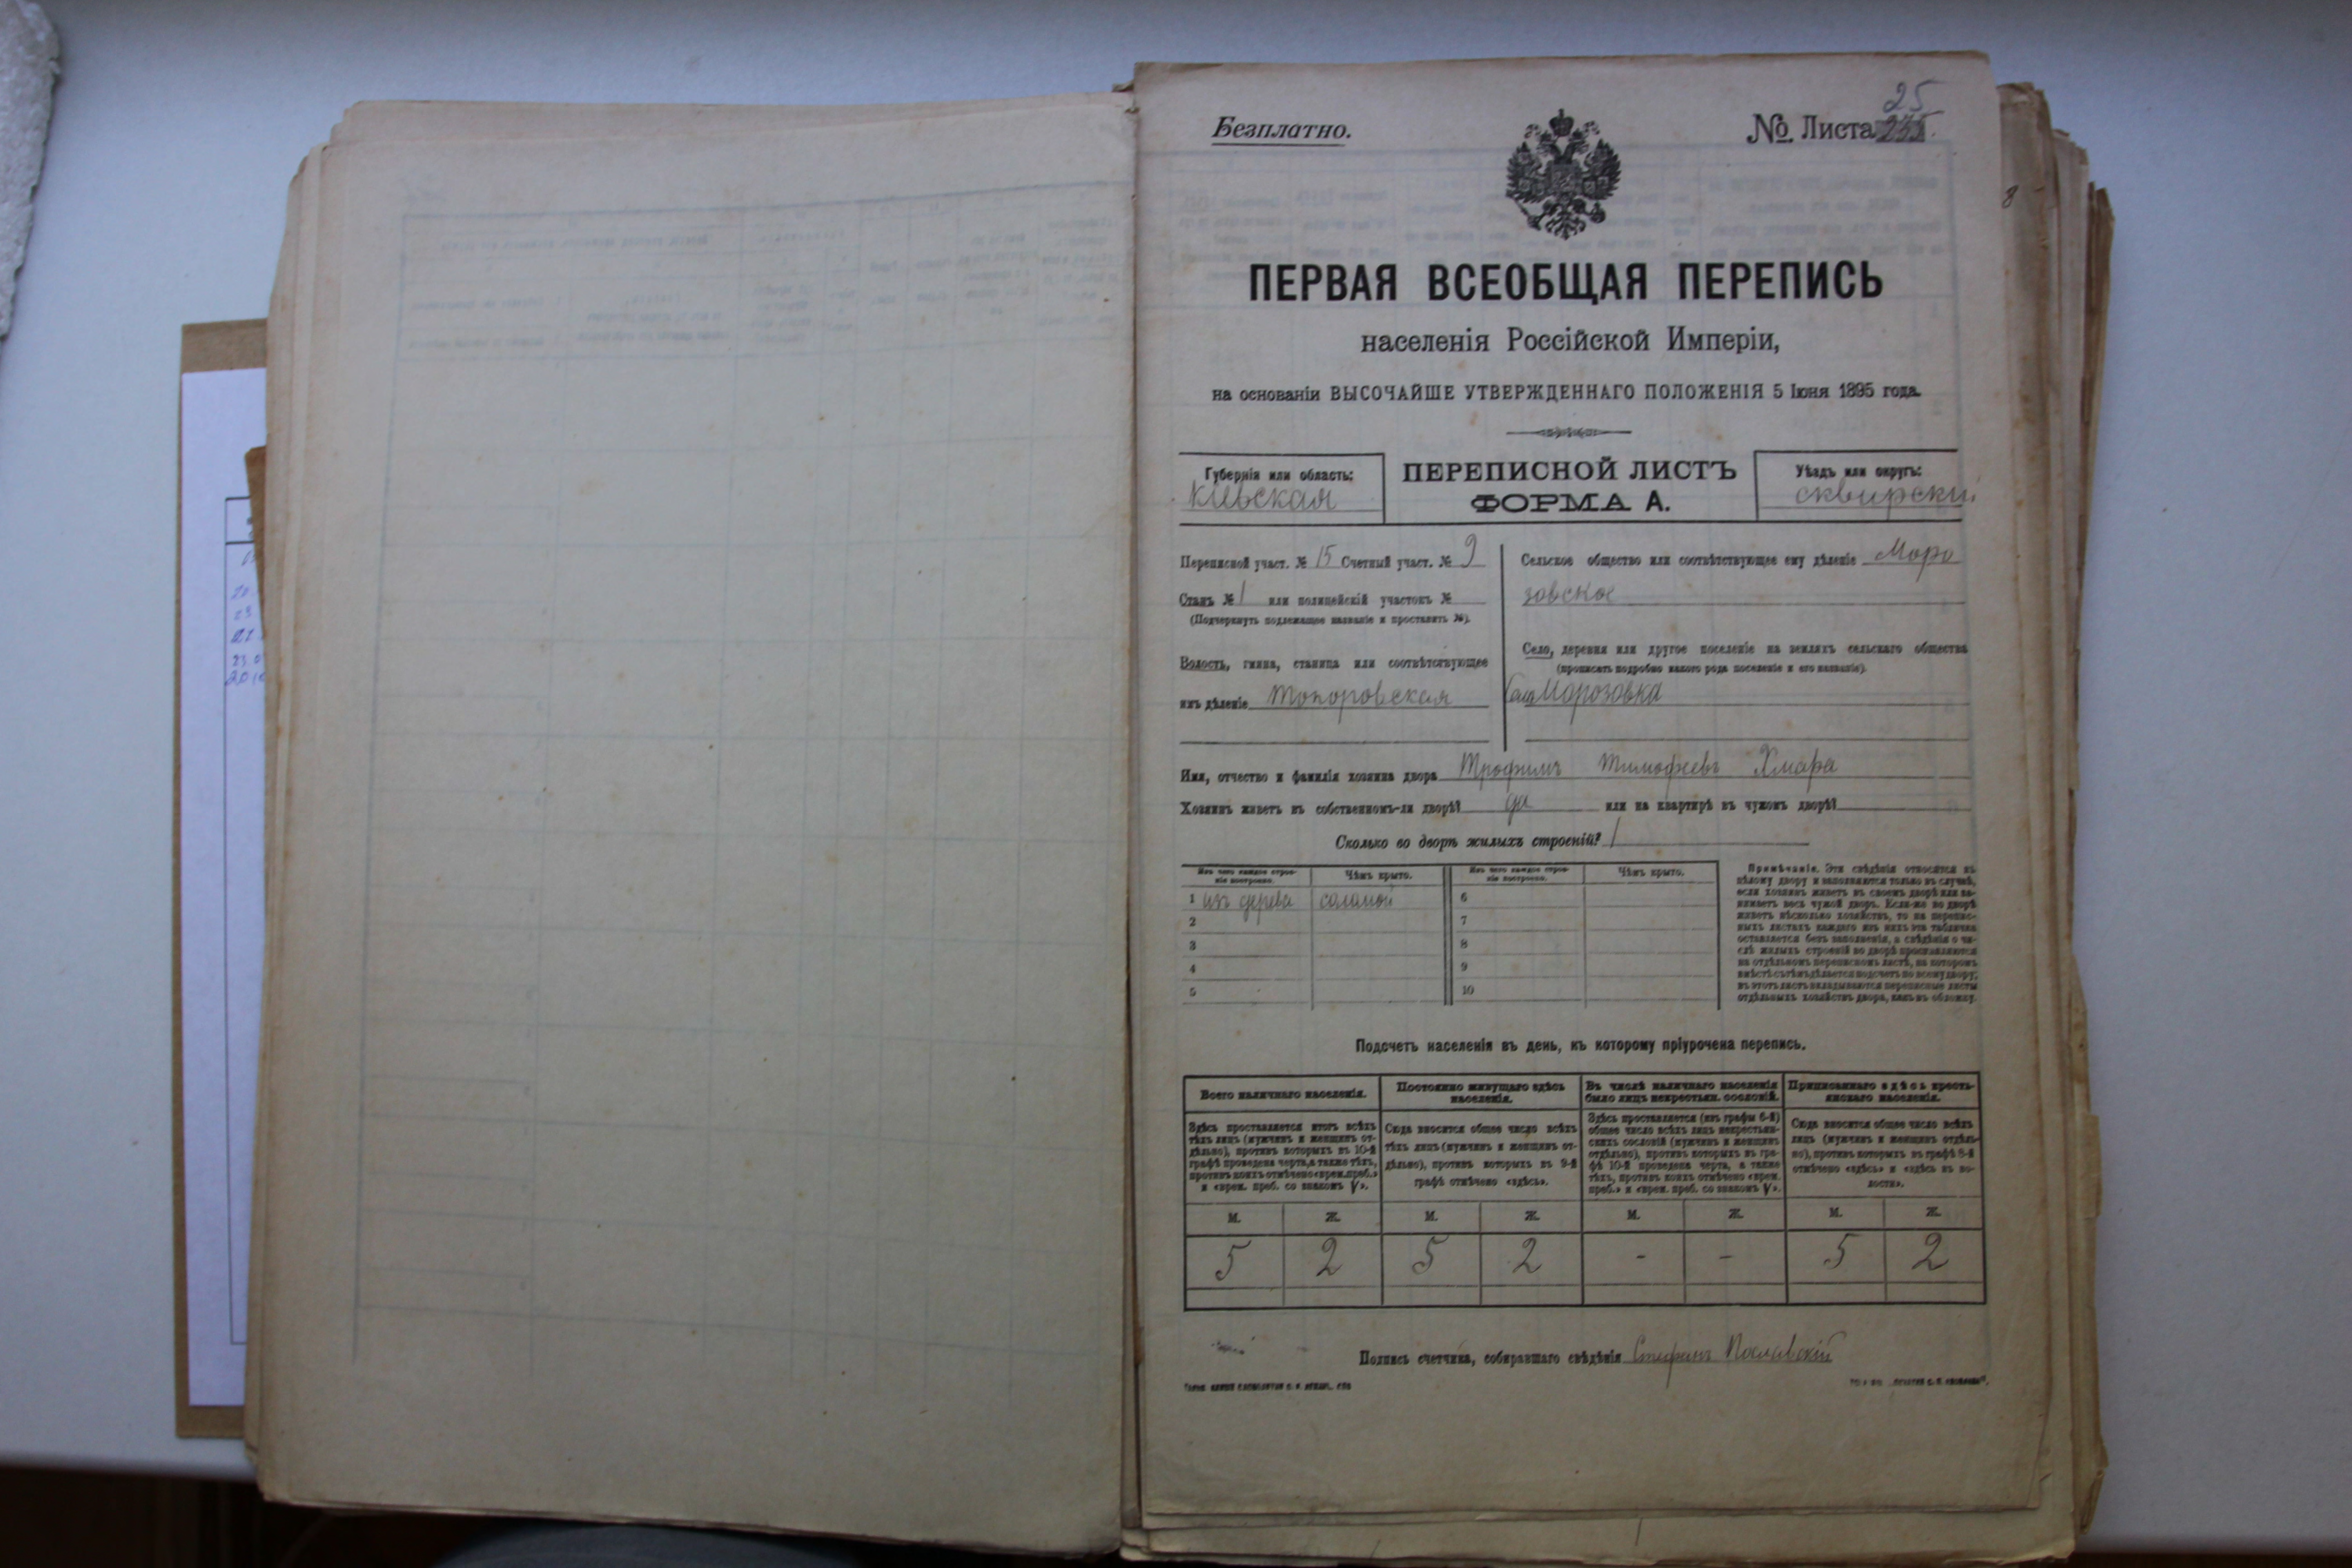 Безплатно.
№ Листа 25
ПЕРВАЯ ВСЕОБЩАЯ ПЕРЕПИСЬ
населенія Россійской Имперіи,
на основаніи ВЫСОЧАЙШЕ УТВЕРЖДЕННАГО ПОЛОЖЕНІЯ 5 Іюня 1895 года.
Губернія или область:
Кіевская
ПЕРЕПИСНОЙ ЛИСТЪ
ФОРМА А.
Уѣздъ или округъ:
сквирскій
Переписной участ. № 15 Счетный участ. № 9
Станъ № 1 или полицейскій участокъ №
(Подчеркнуть подлежащее названіе и проставить №).
Волость, гмина, станица или соотвѣтствующее
имъ дѣленіе Топоровская
Сельское общество или соотвѣтствующее ему дѣленіе Моро
зовское
Село, деревня или другое поселеніе на земляхъ сельскаго общества
(прописать подробно какого рода поселеніе и его названіе).
Село Морозовка
Имя, отчество и фамилія хозяина двора Трофимъ Тимофеевъ Хмара
Хозяинъ живетъ въ собственномъ-ли дворѣ? да или на квартирѣ въ чужомъ дворѣ?
Сколько во дворѣ жилыхъ строеній? 1
Изъ чего каждое строе-
ніе построено.
Чѣмъ крыто.
Изъ чего каждое строе-
ніе построено.
Чѣмъ крыто.
1 изъ дерева соломой 6
2 7
3 8
4 9
5 10
Примѣчаніе. Эти свѣдѣнія относятся къ
цѣлому двору и заполняются только въ случаѣ,
если хозяинъ живетъ въ своемъ дворѣ или за-
нимаетъ весь чужой дворъ. Если-же во дворѣ
живетъ нѣсколько хозяйствъ, то на перепис-
ныхъ листахъ каждаго изъ нихъ эта табличка
оставляется безъ заполненія, а свѣдѣнія о чи-
слѣ жилыхъ строеній во дворѣ проставляются
на отдѣльномъ переписномъ листѣ, на которомъ
вмѣстѣ съ тѣмъ дѣлается подсчетъ по всему двору;
въ этотъ листъ вкладываются переписные листы
отдѣльныхъ хозяйствъ двора, какъ въ обложку.
Подсчетъ населенія въ день, къ которому пріурочена перепись.
Всего наличнаго населенія.
Постоянно живущаго здѣсь
населенія.
Въ числѣ наличнаго населенія
было лицъ некрестьян. сословій.
Приписаннаго здѣсь кресть-
янскаго населенія.
Здѣсь проставляется итогъ всѣхъ
тѣхъ лицъ (мужчинъ и женщинъ от-
дѣльно), противъ которыхъ въ 10-й
графѣ проведена черта, а также тѣхъ,
противъ коихъ отмѣчено «врем. преб.»
и «врем. преб. со знакомъ V».
Сюда вносится общее число всѣхъ
тѣхъ лицъ (мужчинъ и женщинъ от-
дѣльно), противъ которыхъ въ 9-й
графѣ отмѣчено «здѣсь».
Здѣсь проставляется (изъ графы 6-й)
общее число всѣхъ лицъ некрестьян-
скихъ сословій (мужчинъ и женщинъ
отдѣльно), противъ которыхъ въ гра-
фѣ 10-й проведена черта, а также
тѣхъ, противъ коихъ отмѣчено «врем.
преб.» и «врем. преб. со знакомъ V».
Сюда вносится общее число всѣхъ
лицъ (мужчинъ и женщинъ отдѣль-
но), противъ которыхъ въ графѣ 8-й
отмѣчено «здѣсь» и «здѣсь въ во-
лости».
М. Ж. М. Ж. М. Ж. М. Ж.
5 2 5 2 - - 5 2
Подпись счетчика, собиравшаго свѣдѣнія Стефанъ